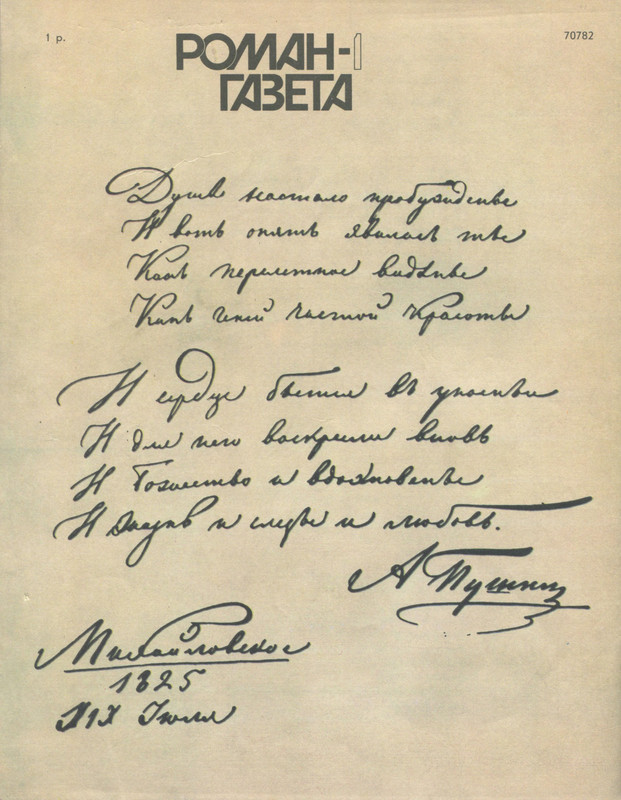 1 р.
70782
РОМАН-
ГАЗЕТА
Душе настало пробужденье
И вотъ опять явилась ты
Какъ перелетное видѣнье
Какъ геній чистой красоты
И сердце бьется въ упоеньи
И для него воскресли вновь
И Божество и вдохновенье
И жизнь и слезы и любовь.
А Пушкин
Михайловское
1825
XIX Июля